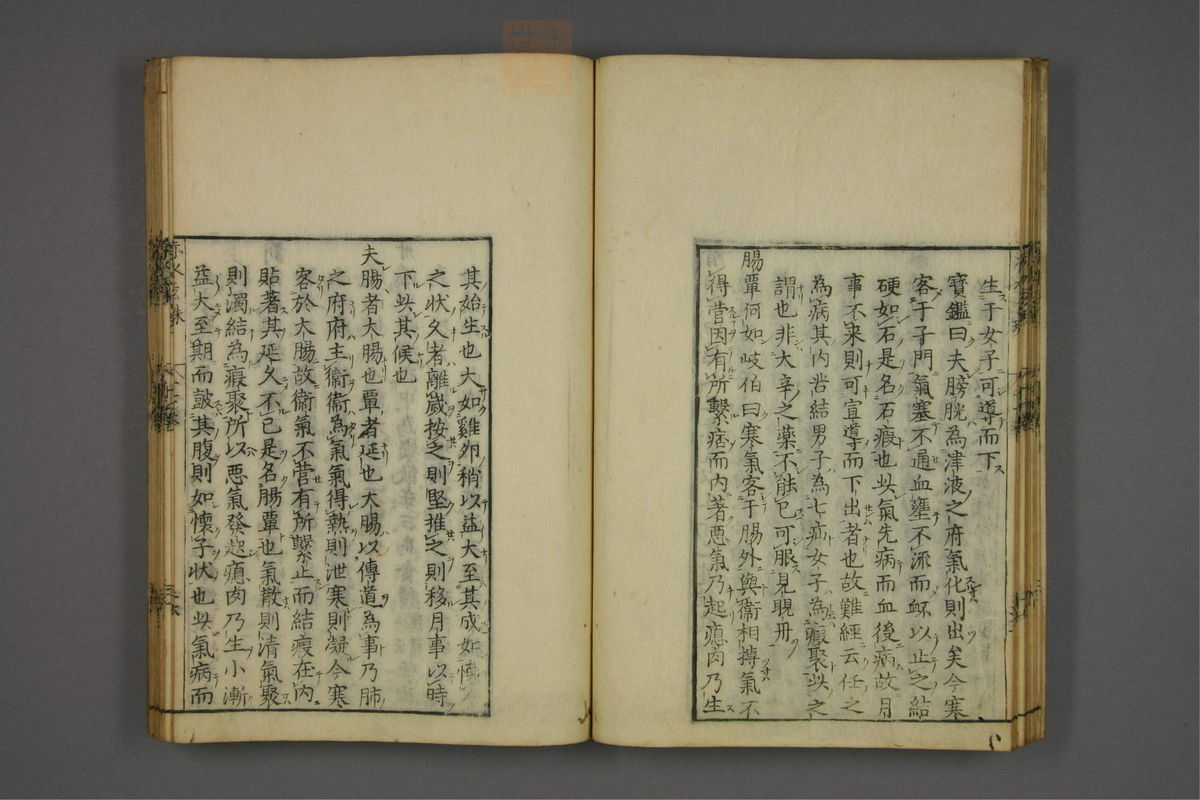 生于女子可導而下
寶鑑曰夫膀胱為津液之府氣化則出矣今寒
客于子門氣塞不通血壅不流而衃以止之結
硬如石是名石瘕也此氣先病而血後病故月
事不來則可宣導而下出者也故難經云任之
為病其内苦結男子為七疝女子為瘕聚此之
謂也非大辛之藥不能已可服見晛丹
腸覃何如岐伯曰寒氣客于腸外與衞相搏氣不
得營因有所繫痞而内著惡氣乃起瘜肉乃生
其始生也大如雞卵稍以益大至其成如懷子
之狀久者離歲按之則堅推之則移月事以時
下此其候也
夫腸者大腸也覃者延也大腸以傳道為事乃肺
之府府主衞衞為氣氣得熱則泄寒則凝今寒
客於大腸故衞氣不營有所繫止而結瘕在内
貼著其延久不已是名腸覃也氣散則清氣聚
則濁結為瘕聚所以惡氣發起瘜肉乃生小漸
益大至期而鼓其腹則如懷子状也此氣病而